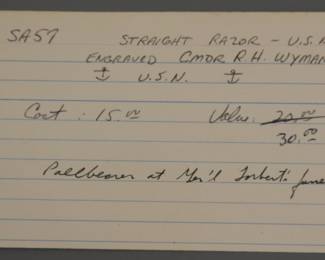 SA57 STRAIGHT RAZOR - U.S.A
ENGRAVED CMDR R.H. WYMAN
U.S.N.
Cost : 15.00 Value: 20.00
30.00
Pallbearer at Gen'l Torbert's fune